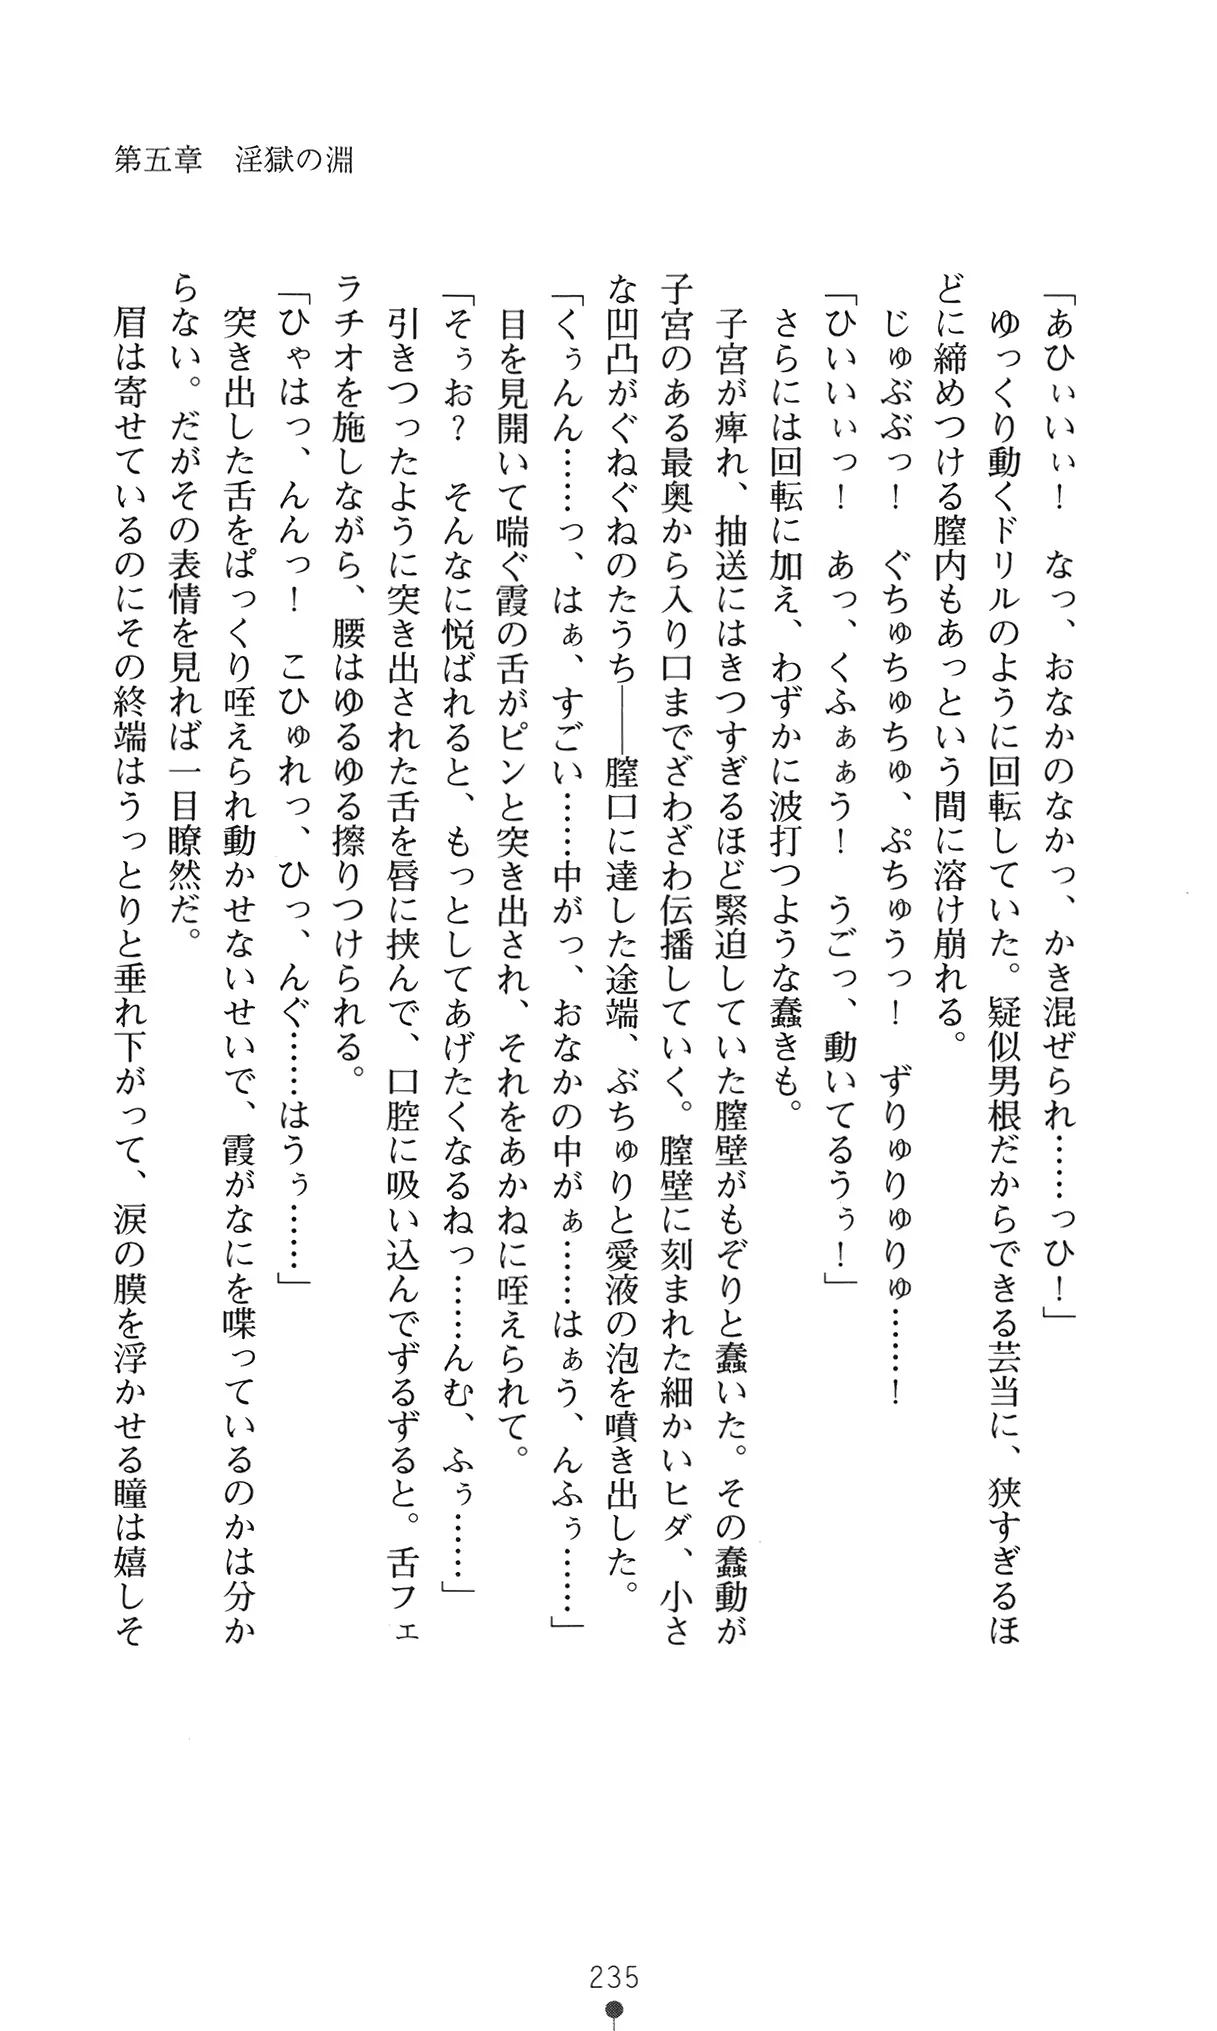 第五章　淫獄の淵
「あひぃいぃ！　なっ、おなかのなかっ、かき混ぜられ……っひ！」
　ゆっくり動くドリルのように回転していた。疑似男根だからできる芸当に、狭すぎるほ
どに締めつける膣内もあっという間に溶け崩れる。
　じゅぶぶっ！　ぐちゅちゅちゅ、ぷちゅうっ！　ずりゅりゅりゅ……！
「ひいいぃっ！　あっ、くふぁぁう！　うごっ、動いてるうぅ！」
　さらには回転に加え、わずかに波打つような蠢きも。
　子宮が痺れ、抽送にはきつすぎるほど緊迫していた膣壁がもぞりと蠢いた。その蠢動が
子宮のある最奥から入り口までざわざわ伝播していく。膣壁に刻まれた細かいヒダ、小さ
な凹凸がぐねぐねのたうち――膣口に達した途端、ぶちゅりと愛液の泡を噴き出した。
「くぅんん……っ、はぁ、すごい……中がっ、おなかの中がぁ……はぁう、んふぅ……」
　目を見開いて喘ぐ霞の舌がピンと突き出され、それをあかねに咥えられて。
「そぅお？　そんなに悦ばれると、もっとしてあげたくなるねっ……んむ、ふぅ……」
　引きつったように突き出された舌を唇に挟んで、口腔に吸い込んでずるずると。舌フェ
ラチオを施しながら、腰はゆるゆる擦りつけられる。
「ひゃはっ、んんっ！　こひゅれっ、ひっ、んぐ……はうぅ……」
　突き出した舌をぱっくり咥えられ動かせないせいで、霞がなにを喋っているのかは分か
らない。だがその表情を見れば一目瞭然だ。
　眉は寄せているのにその終端はうっとりと垂れ下がって、涙の膜を浮かせる瞳は嬉しそ
235